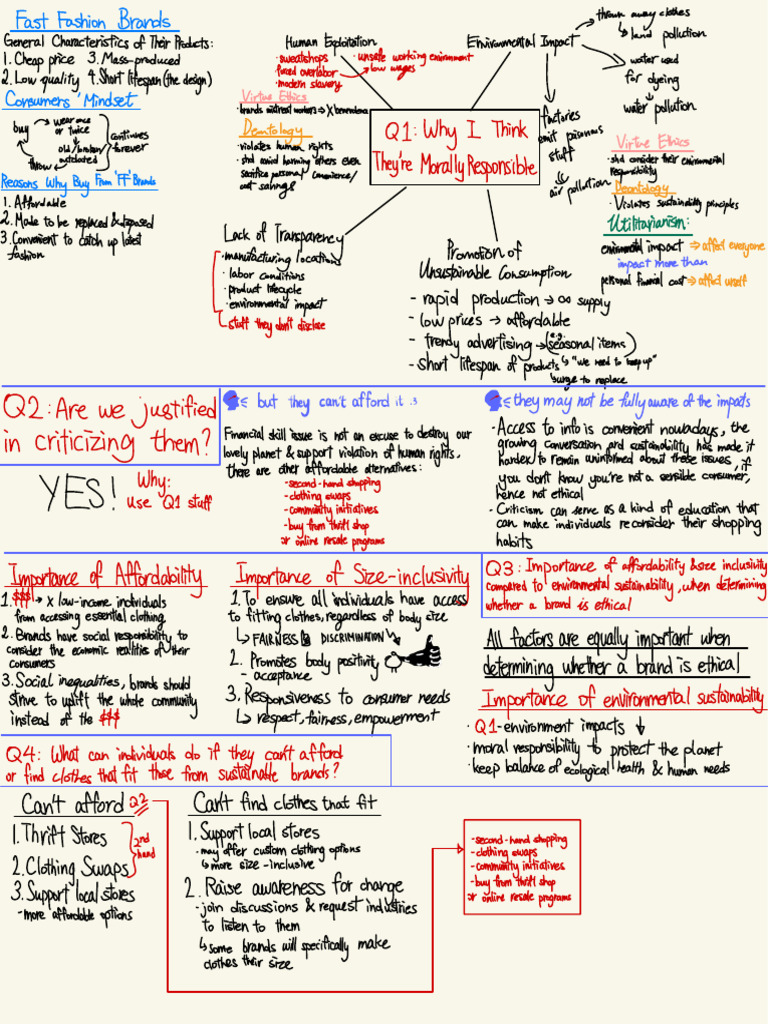 Fast Fashion Brands
General Characteristics of Their Products:
1. Cheap price 3. Mass-produced
2. Low quality 4. Short lifespan (the design)
Consumers' Mindset
buy
wear once
or twice
old/broken/
outdated
throw
continues
forever
Reasons Why Buy From 'FF' Brands
1. Affordable
2. Made to be replaced & disposed
3. Convenient to catch up latest
fashion
Human Exploitation
• sweatshops
forced overlabor
• modern slavery
• unsafe working environment
low wages
Virtue Ethics
• brands mistreat workers → X benevolence
Deontology
• violates human rights
• shd avoid harming others even
sacrifice personal convenience/
cost savings
Q1: Why I Think
They're Morally Responsible
Environmental Impact
thrown away clothes
↳ land pollution
water used
for dyeing
water pollution
factories
emit poisonous
stuff
air pollution
Virtue Ethics
• shd consider their environmental
responsibility
Deontology
• Violates sustainability principles
Utilitarianism:
environmental impact → affect everyone
impact more than
personal financial cost → affect urself
Lack of Transparency
• manufacturing locations
• labor conditions
• product lifecycle
• environmental impact
stuff they don't disclose
Promotion of
Unsustainable Consumption
- rapid production → ∞ supply
- low prices → affordable
- trendy advertising → (e.g. seasonal items)
- short lifespan of products ↳ "we need to keep up"
↳ surge to replace
Q2: Are we justified
in criticizing them?
YES!
Why:
use Q1 stuff
but they can't afford it :(
Financial skill issue is not an excuse to destroy our
lovely planet & support violation of human rights,
there are other affordable alternatives:
- second-hand shopping
- clothing swaps
- community initiatives
- buy from thrift shop
or online resale programs
they may not be fully aware of the impacts
• Access to info is convenient nowadays, the
growing conversation around sustainability has made it
harder to remain uninformed about these issues, if
you don't know you're not a sensible consumer,
hence not ethical
• Criticism can serve as a kind of education that
can make individuals reconsider their shopping
habits
Importance of Affordability
1. $$$ → X low-income individuals
from accessing essential clothing
2. Brands have social responsibility to
consider the economic realities of their
consumers
3. Social inequalities, brands should
strive to uplift the whole community
instead of the $$$
Importance of Size-inclusivity
1. To ensure all individuals have access
to fitting clothes, regardless of body size
↳ FAIRNESS DISCRIMINATION
2. Promotes body positivity
- acceptance
3. Responsiveness to consumer needs
↳ respect, fairness, empowerment
Q3: Importance of affordability & size inclusivity
compared to environmental sustainability, when determining
whether a brand is ethical
All factors are equally important when
determining whether a brand is ethical
Importance of environmental sustainability
• Q1 - environment impacts ↓
• moral responsibility to protect the planet
• keep balance of ecological health & human needs
Q4: What can individuals do if they can't afford
or find clothes that fit those from sustainable brands?
Can't afford Q2
1. Thrift Stores
2. Clothing Swaps
2nd
hand
3. Support local stores
- more affordable options
Can't find clothes that fit
1. Support local stores
• may offer custom clothing options
↳ more size-inclusive
2. Raise awareness for change
- join discussions & request industries
to listen to them
↳ some brands will specifically make
clothes their size
- second-hand shopping
- clothing swaps
- community initiatives
- buy from thrift shop
or online resale programs